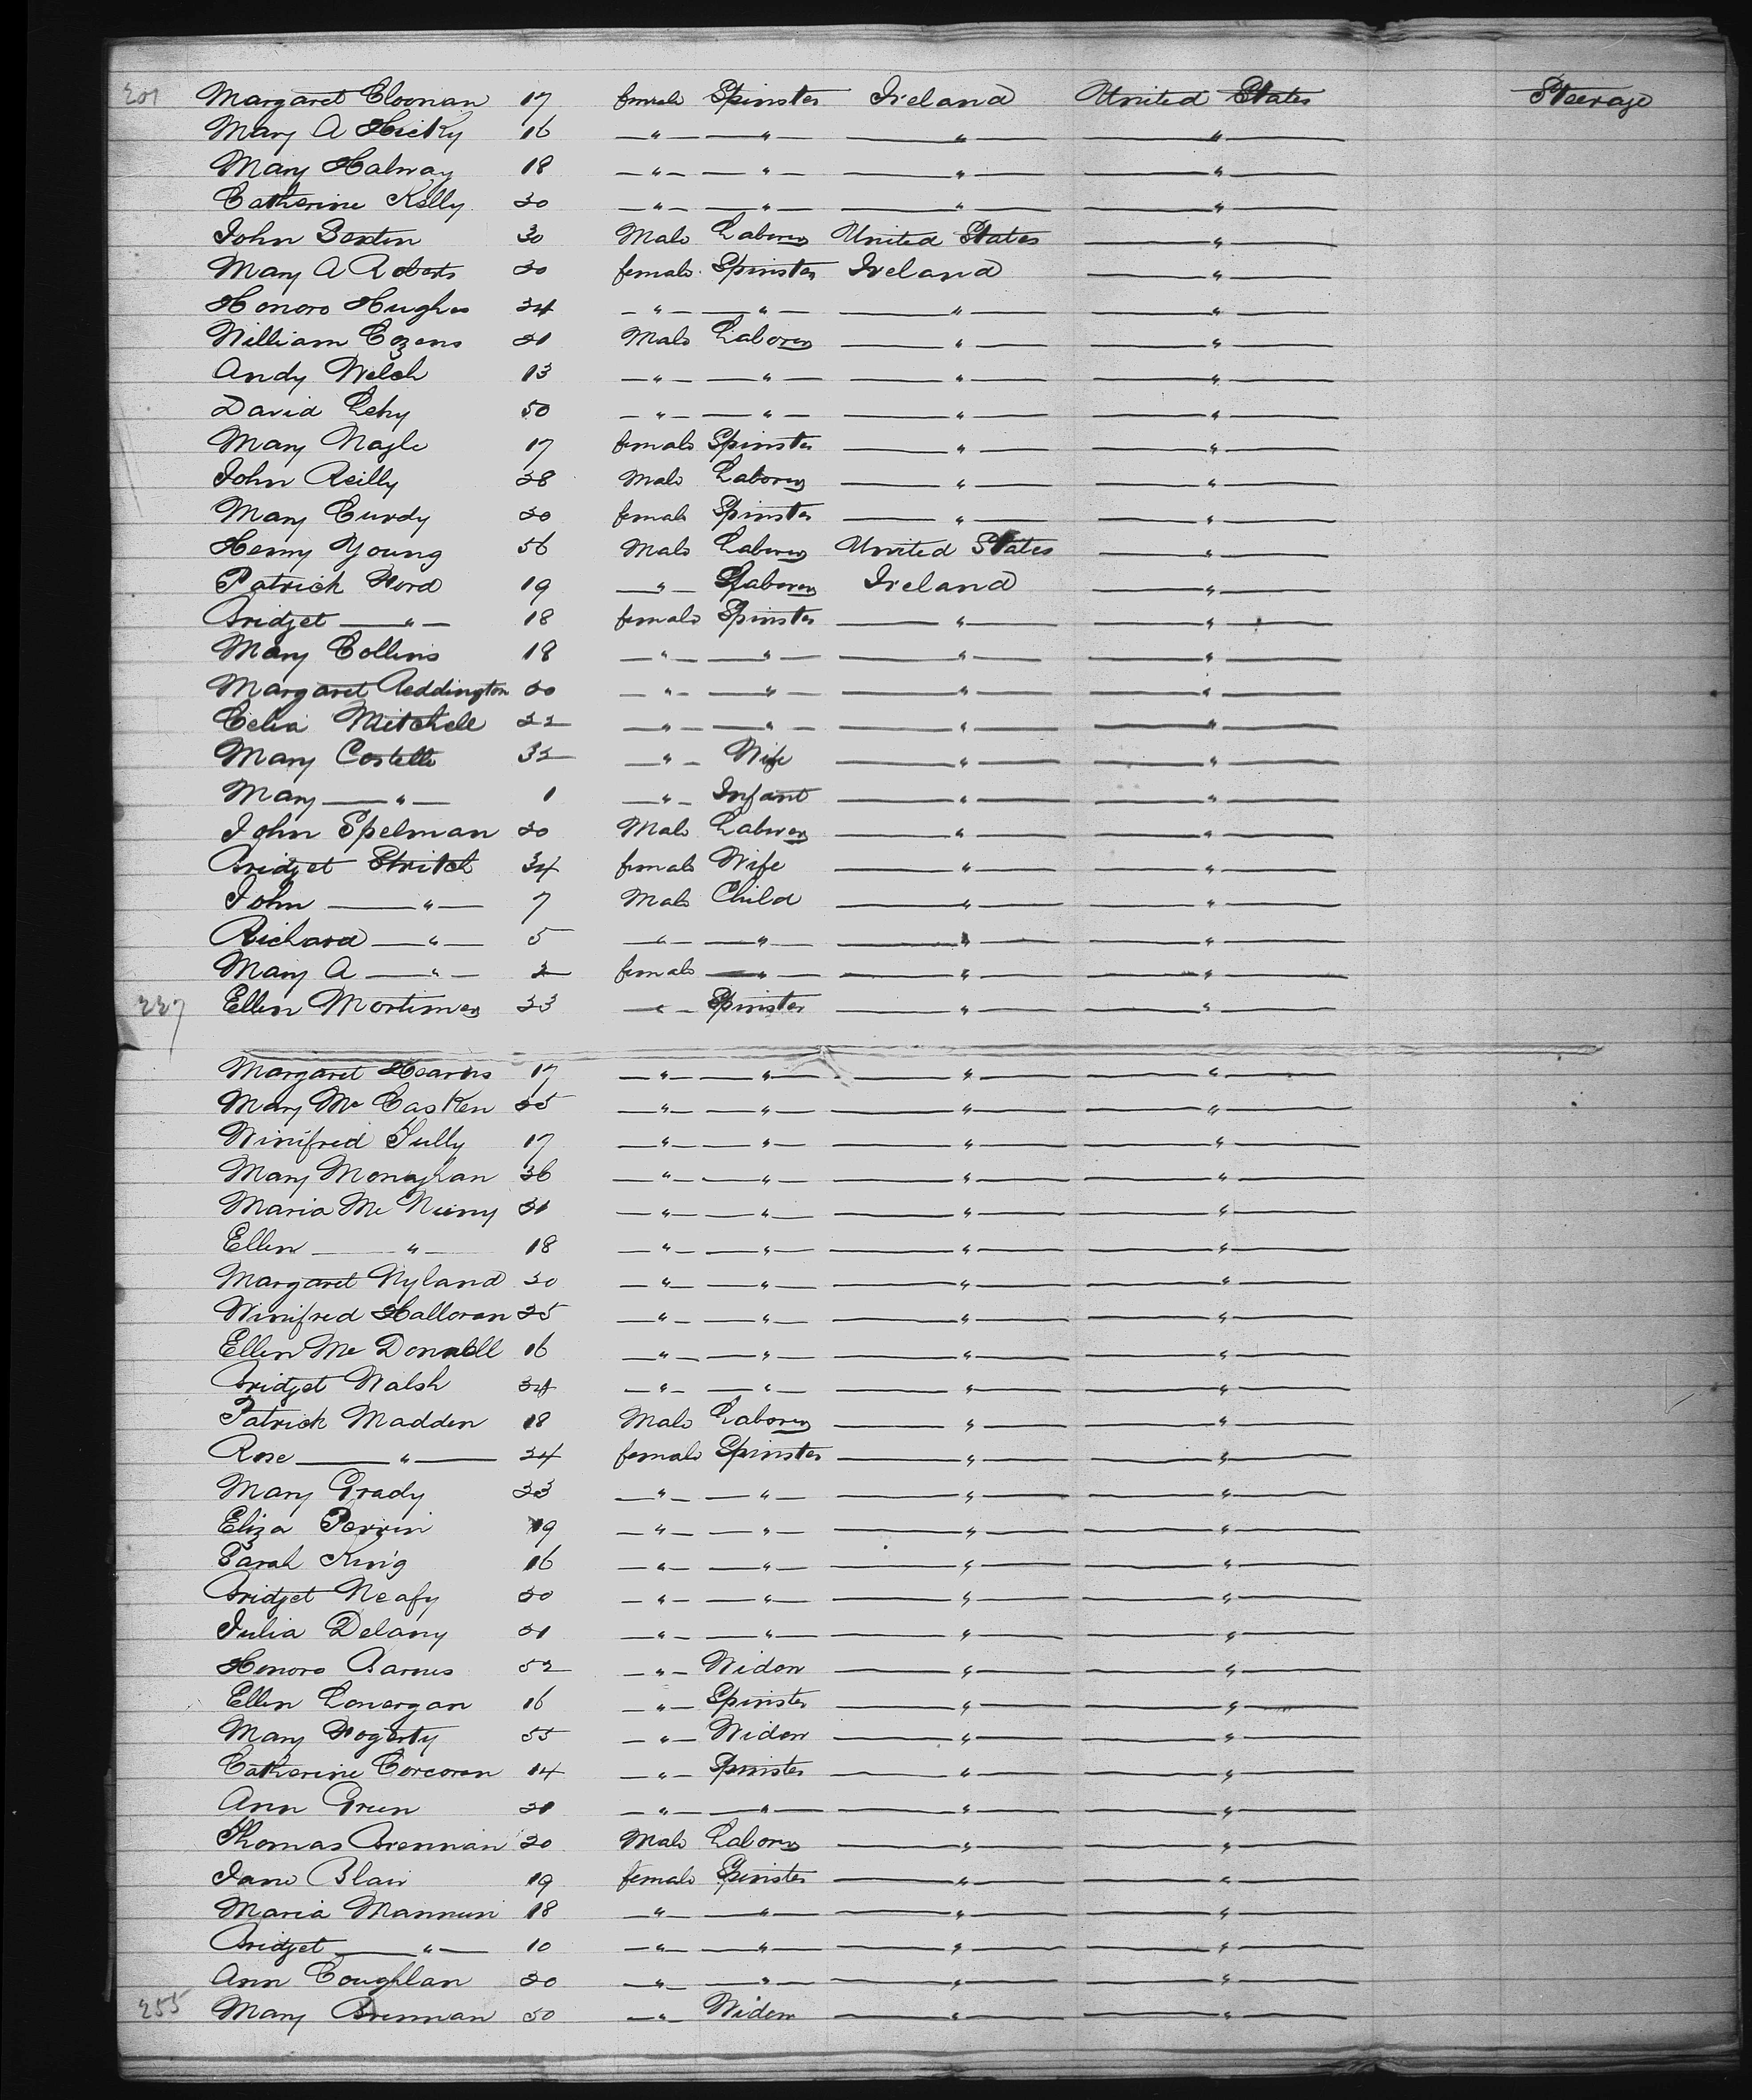 201 Margaret Cloonan 17 female Spinster Ireland United States Steerage
Mary A Hicky 16 — " — — " — — " — — " —
Mary Halway 18 — " — — " — — " — — " —
Catherine Kelly 20 — " — — " — — " — — " —
John Sexton 30 Male Laborer United States — " —
Mary A Roberts 20 female Spinster Ireland — " —
Honora Hughes 24 — " — — " — — " — — " —
William Cozens 21 Male Laborer — " — — " —
Andy Welch 13 — " — — " — — " — — " —
David Lehy 50 — " — — " — — " — — " —
Mary Nagle 17 female Spinster — " — — " —
John Reilly 28 Male Laborer — " — — " —
Mary Curdy 20 female Spinster — " — — " —
Henry Young 56 Male Laborer United States — " —
Patrick Ford 19 — " — Laborer Ireland — " —
Bridget — " — 18 female Spinster — " — — " —
Mary Collins 18 — " — — " — — " — — " —
Margaret Reddington 20 — " — — " — — " — — " —
Celia Mitchell 22 — " — — " — — " — — " —
Mary Costello 32 — " — Wife — " — — " —
Mary — " — 1 — " — Infant — " — — " —
John Spelman 20 Male Laborer — " — — " —
Bridget Stritch 34 female Wife — " — — " —
John — " — 7 Male Child — " — — " —
Richard — " — 5 — " — — " — — " — — " —
Mary A — " — 2 female — " — — " — — " —
227 Ellen Mortimer 23 — " — Spinster — " — — " —
Margaret Hearns 17 — " — — " — — " — — " —
Mary Mc Casken 25 — " — — " — — " — — " —
Winifred Tully 17 — " — — " — — " — — " —
Mary Monaghan 26 — " — — " — — " — — " —
Maria Mc 21 — " — — " — — " — — " —
Ellen — " — 18 — " — — " — — " — — " —
Margaret Nyland 20 — " — — " — — " — — " —
Winifred Halloran 25 — " — — " — — " — — " —
Ellen Mc Donnell 16 — " — — " — — " — — " —
Bridget Walsh 24 — " — — " — — " — — " —
Patrick Madden 18 Male Laborer — " — — " —
Rose — " — 24 female Spinster — " — — " —
Mary Grady 23 — " — — " — — " — — " —
Eliza Perrin 19 — " — — " — — " — — " —
Sarah King 16 — " — — " — — " — — " —
Bridget Neafy 20 — " — — " — — " — — " —
Julia Delany 21 — " — — " — — " — — " —
Honora Barnes 52 — " — Widow — " — — " —
Ellen Lonergan 16 — " — Spinster — " — — " —
Mary Fogerty 55 — " — Widow — " — — " —
Catherine Corcoran 14 — " — Spinster — " — — " —
Ann Green 21 — " — — " — — " — — " —
Thomas Brennan 20 Male Laborer — " — — " —
Jane Blair 19 female Spinster — " — — " —
Maria Mannion 18 — " — — " — — " — — " —
Bridget — " — 10 — " — — " — — " — — " —
Ann Coughlan 20 — " — — " — — " — — " —
255 Mary Brennan 50 — " — Widow — " — — " —